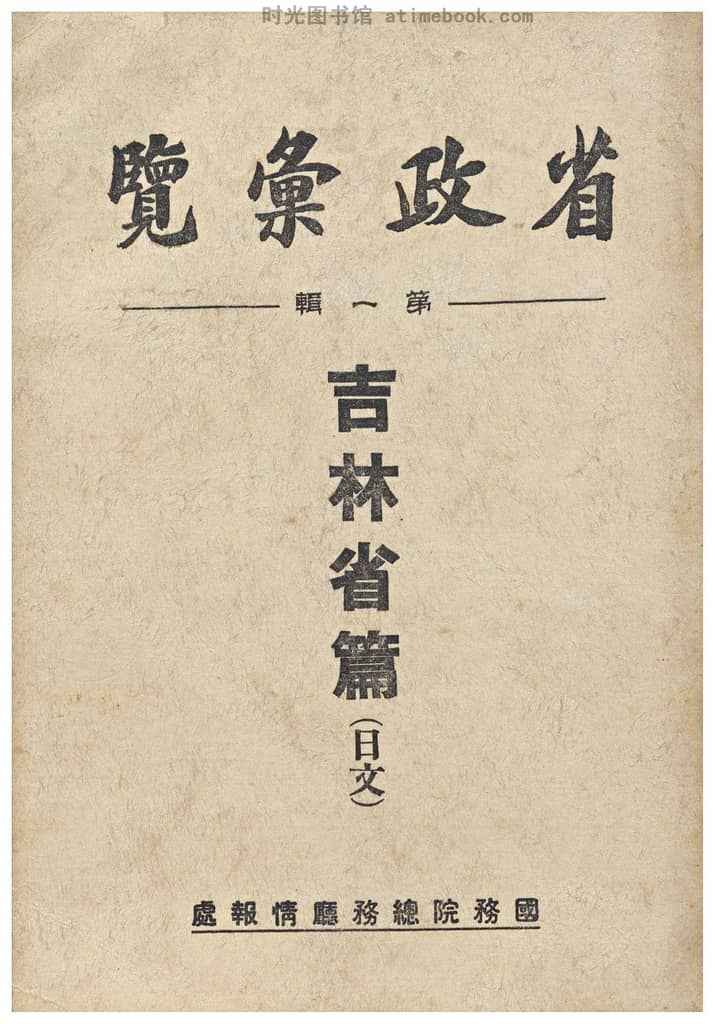 时光图书馆 atimebook.com
省政彙覽
第一輯
吉林省篇
(日文)
國務院總務廳情報處